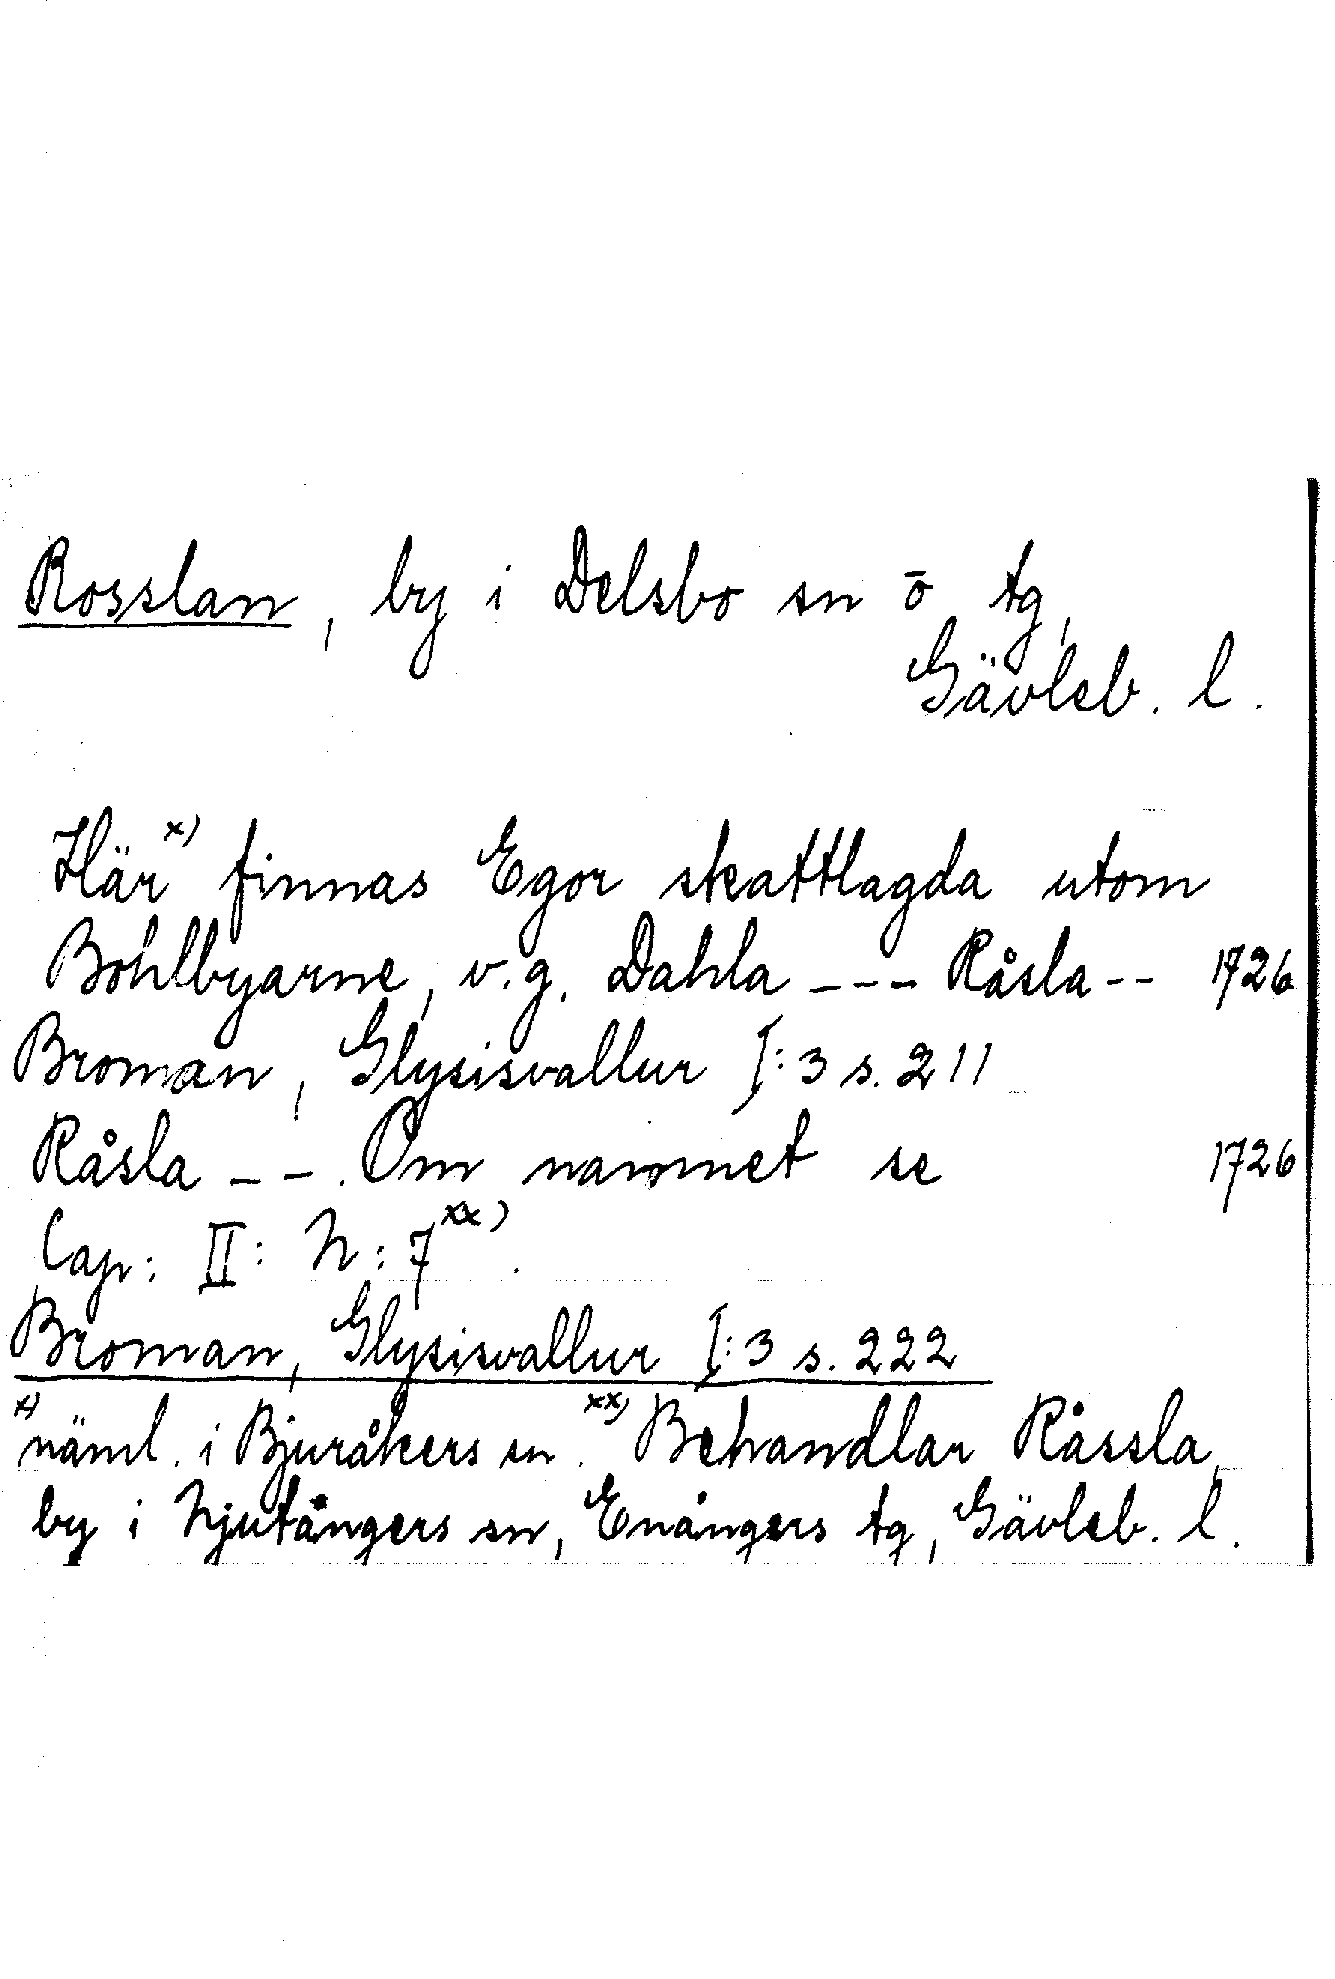 Rosslan, by i Delsbo sn ō tg,
Gävleb. l.
Här x) finnas Egor skattlagda utom
Bohlbyarne, v.g. Dahla --- Råsla -- 1726
Broman, Glysisvallur I:3 s. 211
Råsla -- . Om nammet se 1726
Cap: II: N: 7 xx).
Broman, Glysisvallur I:3 s. 222
x) näml. i Bjuråkers sn. xx) Behandlar Råssla,
by i Njutångers sn, Enångers tg, Gävleb. l.